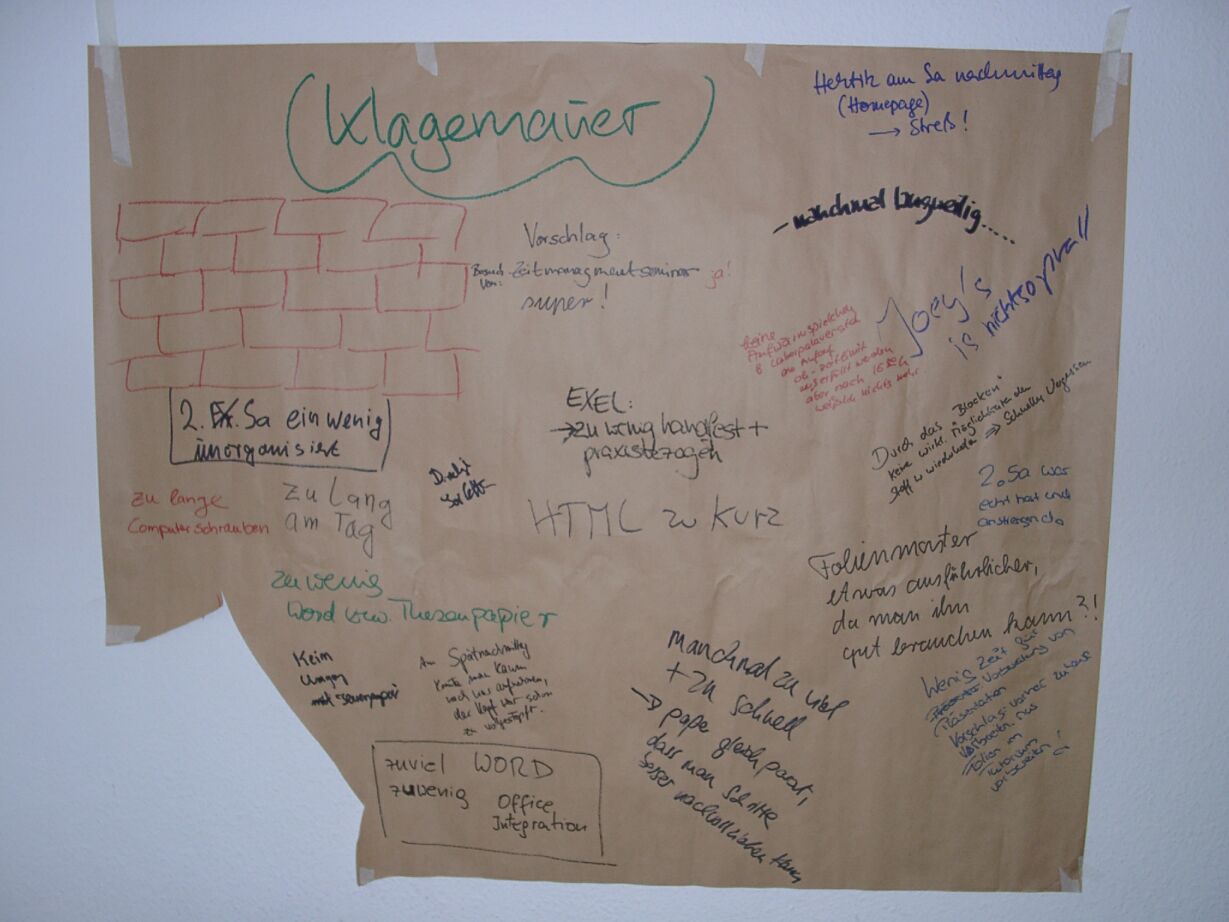 Klagemauer
Hektik am Sa nachmittag
(Homepage)
→ Streß!
- manchmal langweilig.....
Vorschlag:
Besuch von: Zeitmanagmentseminar ja!
super!
Joey's
is nichtsoprall
keine
Aufwärmspielchen
am Anfang
ausgefüllt werden
aber nach 16:00h
nichts mehr.
2. Sa ein wenig
unorganisiert
EXEL:
→ zu wenig handfest +
praxisbezogen
Durch das "Blocken"
keine wirkl. Möglichkeit den
Stoff zu wiederholen ⇒ Schnelles Vergessen
zu lange
Computerschrauben
zu Lang
am Tag
HTML zu kurz
2. Sa war
echt hart und
anstrengend.
Folienmaster
etwas ausführlicher,
da man ihn
gut brauchen kann?!
zu wenig
Word bzw. Thesenpapier
Kein
Am Spätnachmittag
konnte man kaum
noch was aufnehmen,
der Kopf war schon
zu vollgestopft.
manchmal zu viel
+ zu schnell
→ paper gleich parat,
dass man Schritte
besser nachvollziehen kann
Wenig Zeit für
Vorbereitung von
Präsentation
Vorschlag: vorher zu Hause
vorbereiten. nur
Folien im
Tutorium
vorbereiten!
zuviel WORD
zuwenig Office
Integration